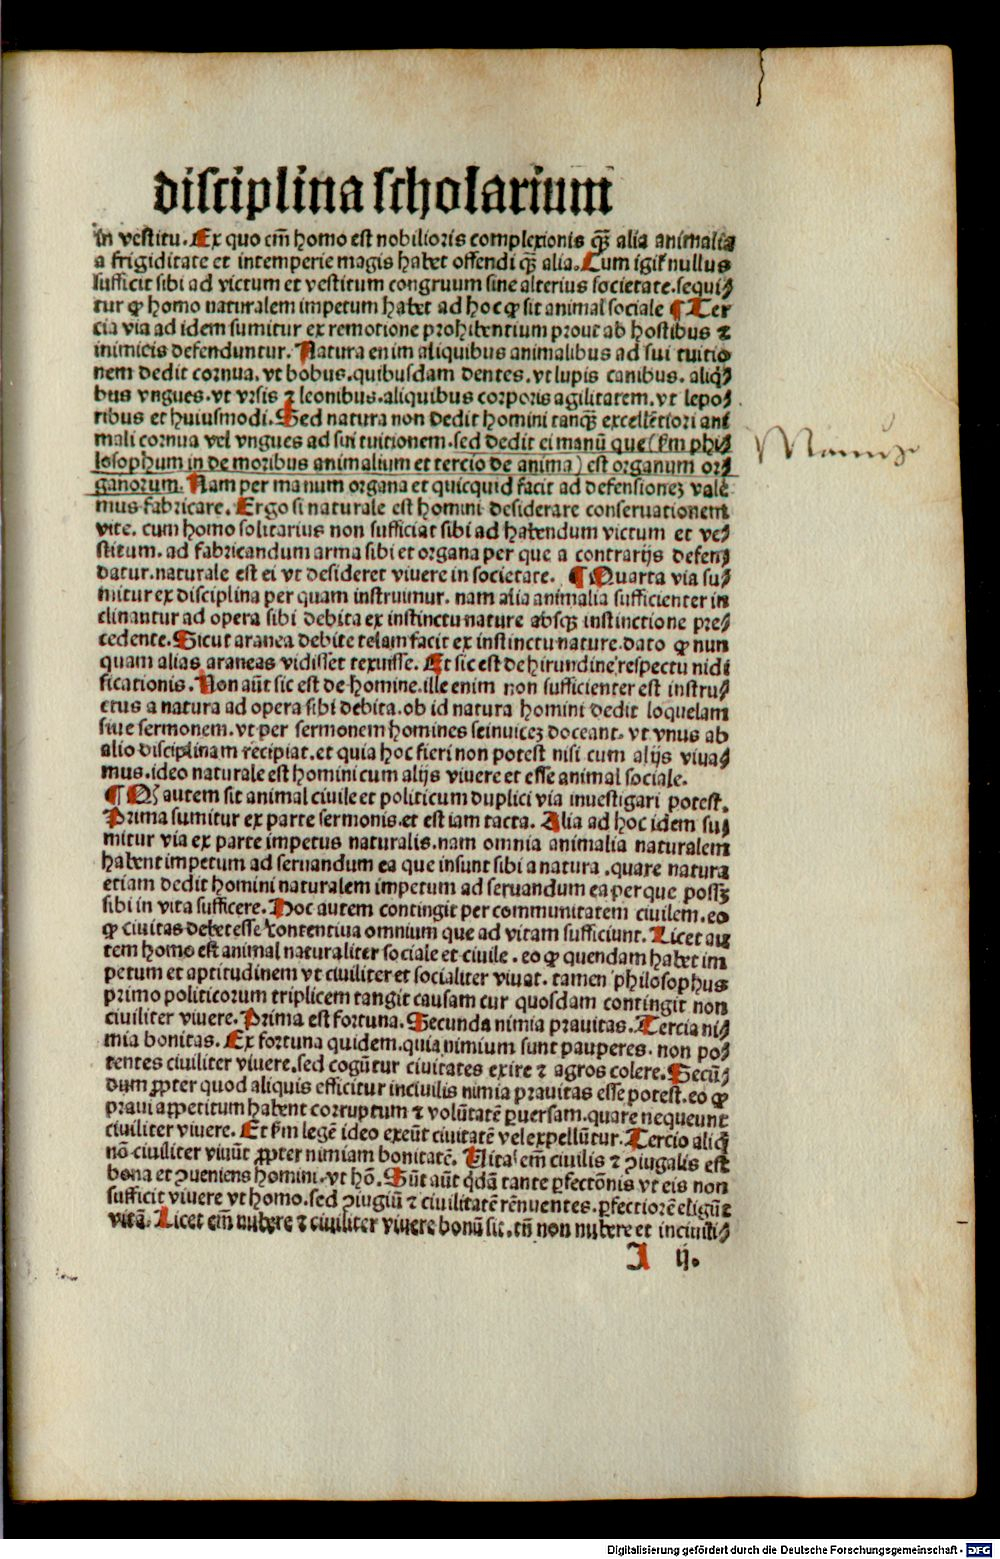 disciplina scholarium
in vestitu. Ex quo em̄ homo est nobilioris complexionis qȝ̄ alia animalia
a frigiditate et intemperie magis habet offendi qȝ̄ alia. Cum igit̉ nullus
sufficit sibi ad victum et vestitum congruum sine alterius societate. sequi⸗
tur ꝙ homo naturalem impetum habet ad hoc ꝙ sit animal sociale ¶ Ter
cia via ad idem sumitur ex remotione prohibentium prout ab hostibus ⁊
inimicis defenduntur. Natura enim aliquibus animalibus ad sui tuitio
nem dedit cornua. vt bobus. quibusdam dentes. vt lupis canibus. aliq̄⸗
bus vngues. vt vrsis ⁊ leonibus. aliquibus corporis agilitatem. vt lepo⸗
ribus et huiusmodi. Sed natura non dedit homini tanqȝ̄ excellētiori ani
mali cornua vel vngues ad sui tuitionem. sed dedit ei manū que (fm̄ phi⸗
losophum in de moribus animalium et tercio de anima) est organum or⸗
ganorum. Nam per manum organa et quicquid facit ad defensioneȝ vale
mus fabricare. Ergo si naturale est homini desiderare conseruationem
vite. cum homo solitarius non sufficiat sibi ad habendum victum et ve⸗
stitum. ad fabricandum arma sibi et organa per que a contrarijs defen⸗
datur. naturale est ei vt desideret viuere in societate. ¶ Quarta via su⸗
mitur ex disciplina per quam instruimur. nam alia animalia sufficienter in
clinantur ad opera sibi debita ex instinctu nature absqȝ instinctione pre⸗
cedente. Sicut aranea debite telam facit ex instinctu nature. dato ꝙ nun
quam alias araneas vidisset texuisse. Et sic est de hirundine respectu nidi
ficationis. Non aūt sic est de homine. ille enim non sufficienter est instru⸗
ctus a natura ad opera sibi debita. ob id natura homini dedit loquelam
siue sermonem. vt per sermonem homines seinuiceȝ doceant. vt vnus ab
alio disciplinam recipiat. et quia hoc fieri non potest nisi cum alijs viua⸗
mus. ideo naturale est homini cum alijs viuere et esse animal sociale.
¶ Qȝ autem sit animal ciuile et politicum duplici via inuestigari potest.
Prima sumitur ex parte sermonis. et est iam tacta. Alia ad hoc idem su⸗
mitur via ex parte impetus naturalis. nam omnia animalia naturalem
habent impetum ad seruandum ea que insunt sibi a natura. quare natura
etiam dedit homini naturalem impetum ad seruandum ea per que possȝ
sibi in vita sufficere. Hoc autem contingit per communitatem ciuilem. eo
ꝙ ciuitas debet esse contentiua omnium que ad vitam sufficiunt. Licet au
tem homo est animal naturaliter sociale et ciuile. eo ꝙ quendam habet im
petum et aptitudinem vt ciuiliter et socialiter viuat. tamen philosophus
primo politicorum triplicem tangit causam cur quosdam contingit non
ciuiliter viuere. Prima est fortuna. Secunda nimia prauitas. Tercia ni⸗
mia bonitas. Ex fortuna quidem. quia nimium sunt pauperes. non po⸗
tentes ciuiliter viuere. sed cogūtur ciuitates exire ⁊ agros colere. Secū⸗
dum ꝓpter quod aliquis efficitur inciuilis nimia prauitas esse potest. eo ꝙ
praui appetitum habent corruptum ⁊ volūtatē ꝑuersam. quare nequeunt
ciuiliter viuere. Et fm̄ legē ideo exeūt ciuitatē vel expellūtur. Tercio aliq̄
nō ciuiliter viuūt ꝓpter nimiam bonitatē. Uita em̄ ciuilis ⁊ ꝯiugalis est
bona et ꝯueniens homini. vt hō. Sūt aūt q̄dā tante ꝑfectōnis vt eis non
sufficit viuere vt homo. sed ꝯiugiū ⁊ ciuilitatē rēnuentes. ꝑfectiorē eligūt
vitā. Licet em̄ nubere ⁊ ciuiliter viuere bonū sit. tn̄ non nubere et inciuili⸗
I ij.
Digitalisierung gefördert durch die Deutsche Forschungsgemeinschaft - DFG